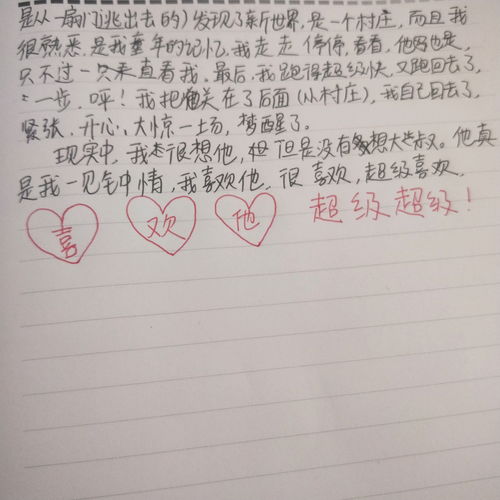 是从一扇门逃出去的）发现了新世界，是一个村庄，而且我
很熟悉，是我童年的记忆，我走走停停，看看，他也是，
只不过一只来直看我，最后，我跑得超级快，又跑回去了，
一步，呼！我把他关在了后面（从村庄），我自己回去了，
紧张、开心、大惊一场，梦醒了。
现实中，我也很想他，但是没有多想大叔。他真
是我一见钟情，我喜欢他，很喜欢，超级喜欢，
喜 欢 他 超级超级！